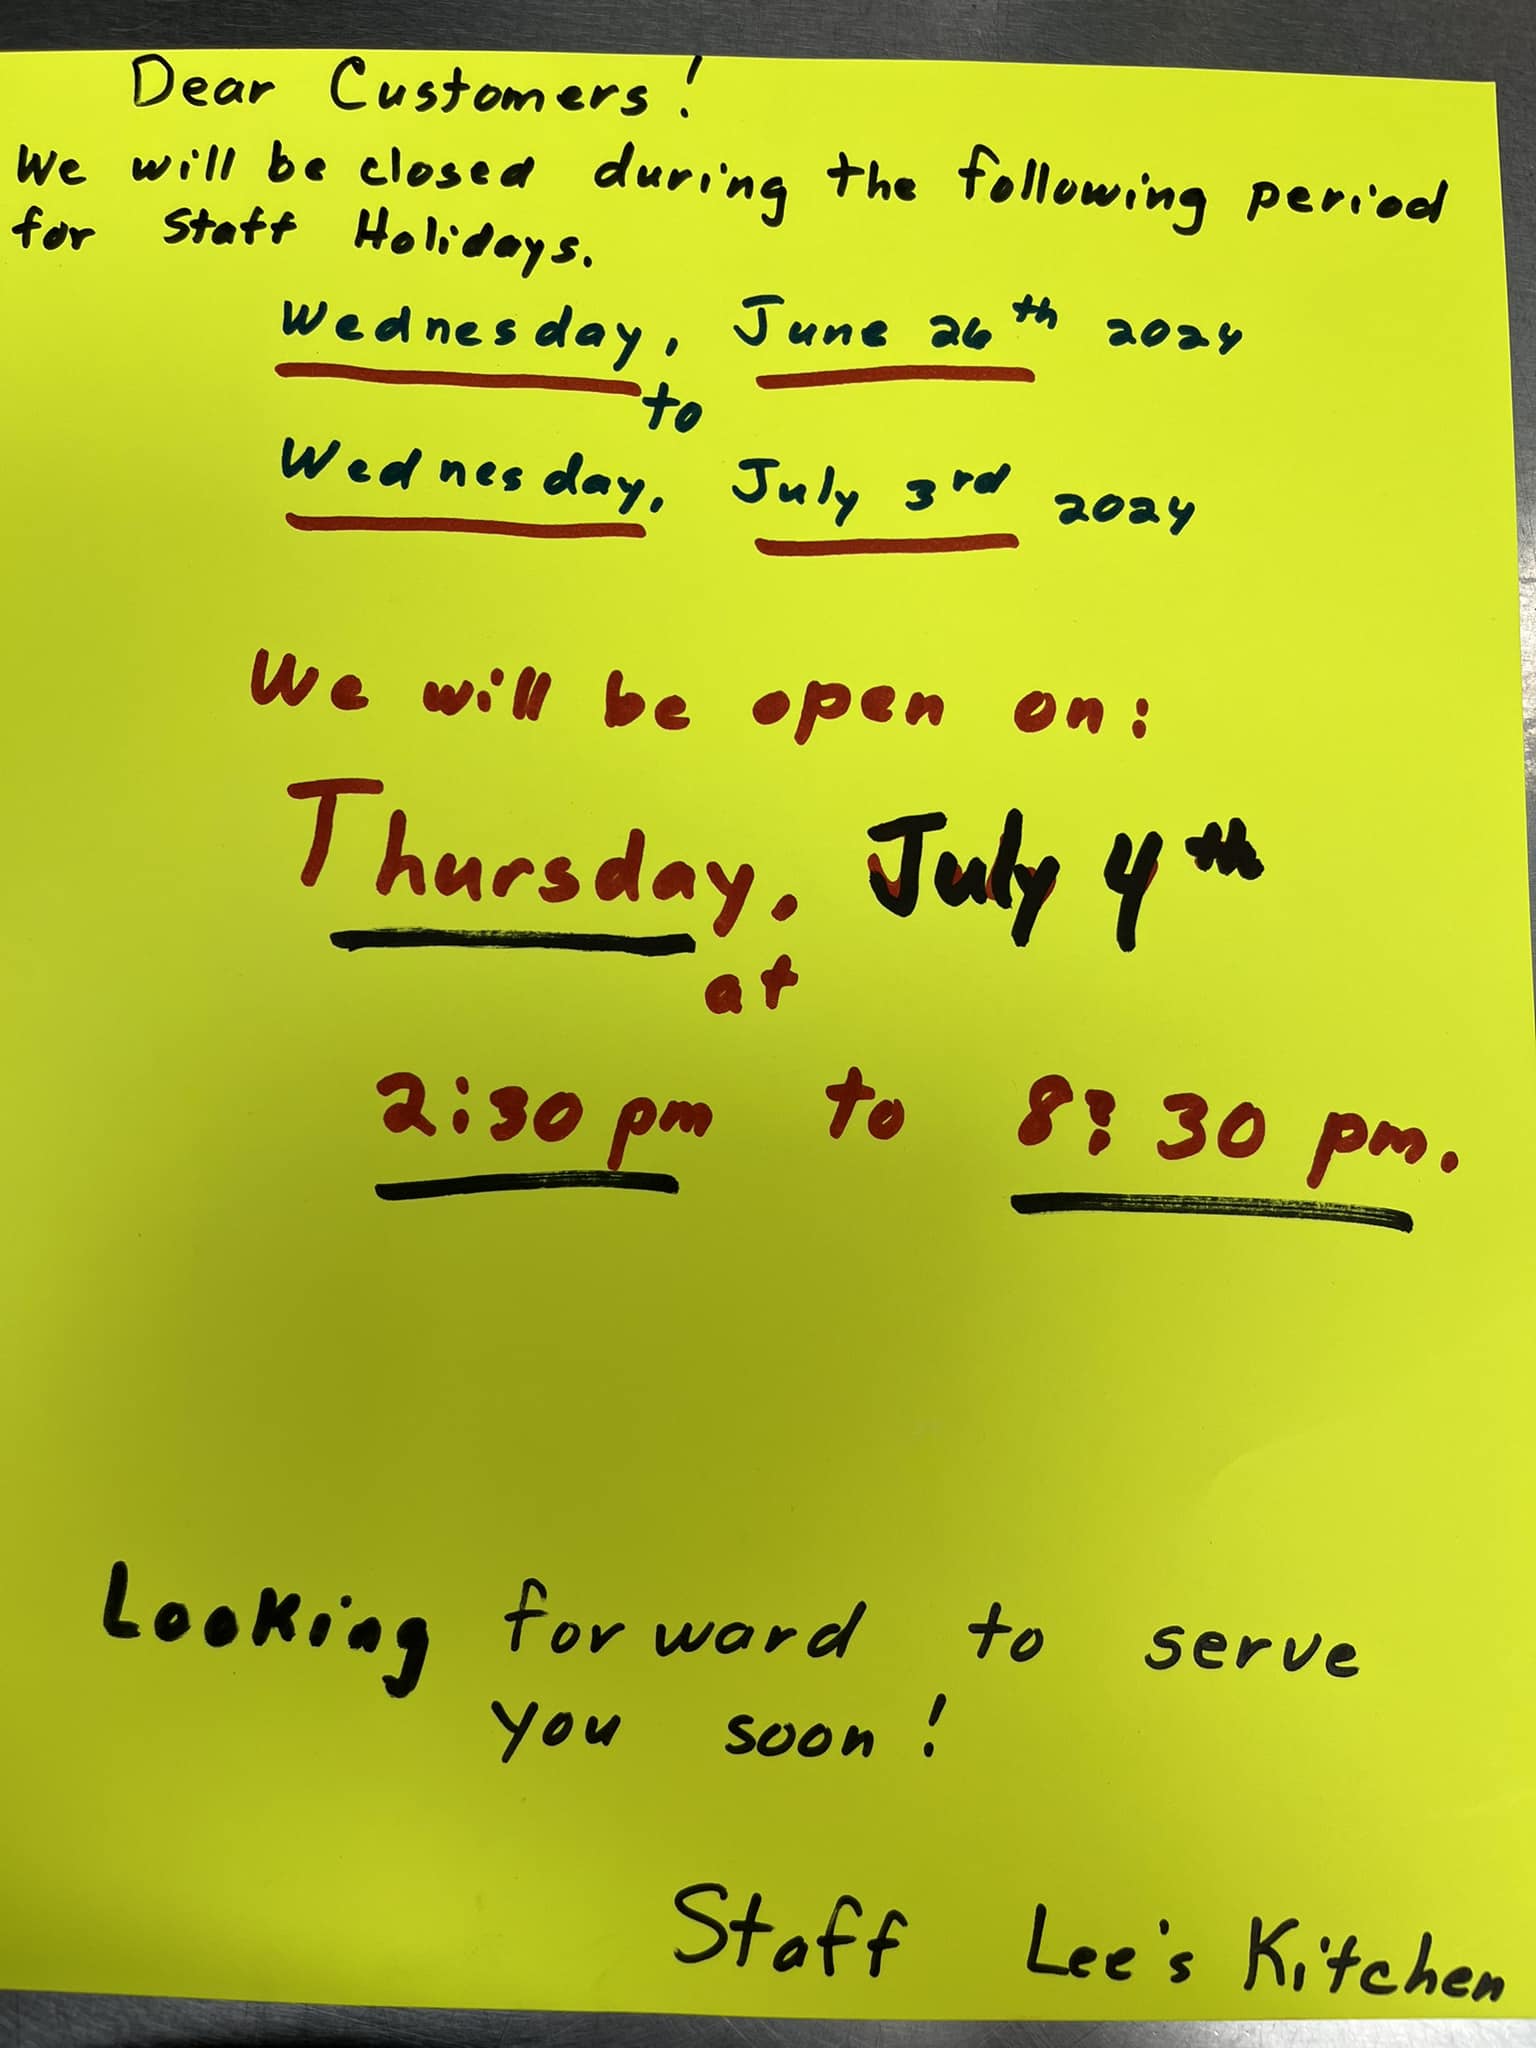 Dear Customers!
We will be closed during the following period
for Staff Holidays.
Wednesday, June 26th 2024
to
Wednesday, July 3rd 2024
We will be open on:
Thursday, July 4th
at
2:30 pm to 8:30 pm.
Looking forward to serve
you soon!
Staff Lee's Kitchen